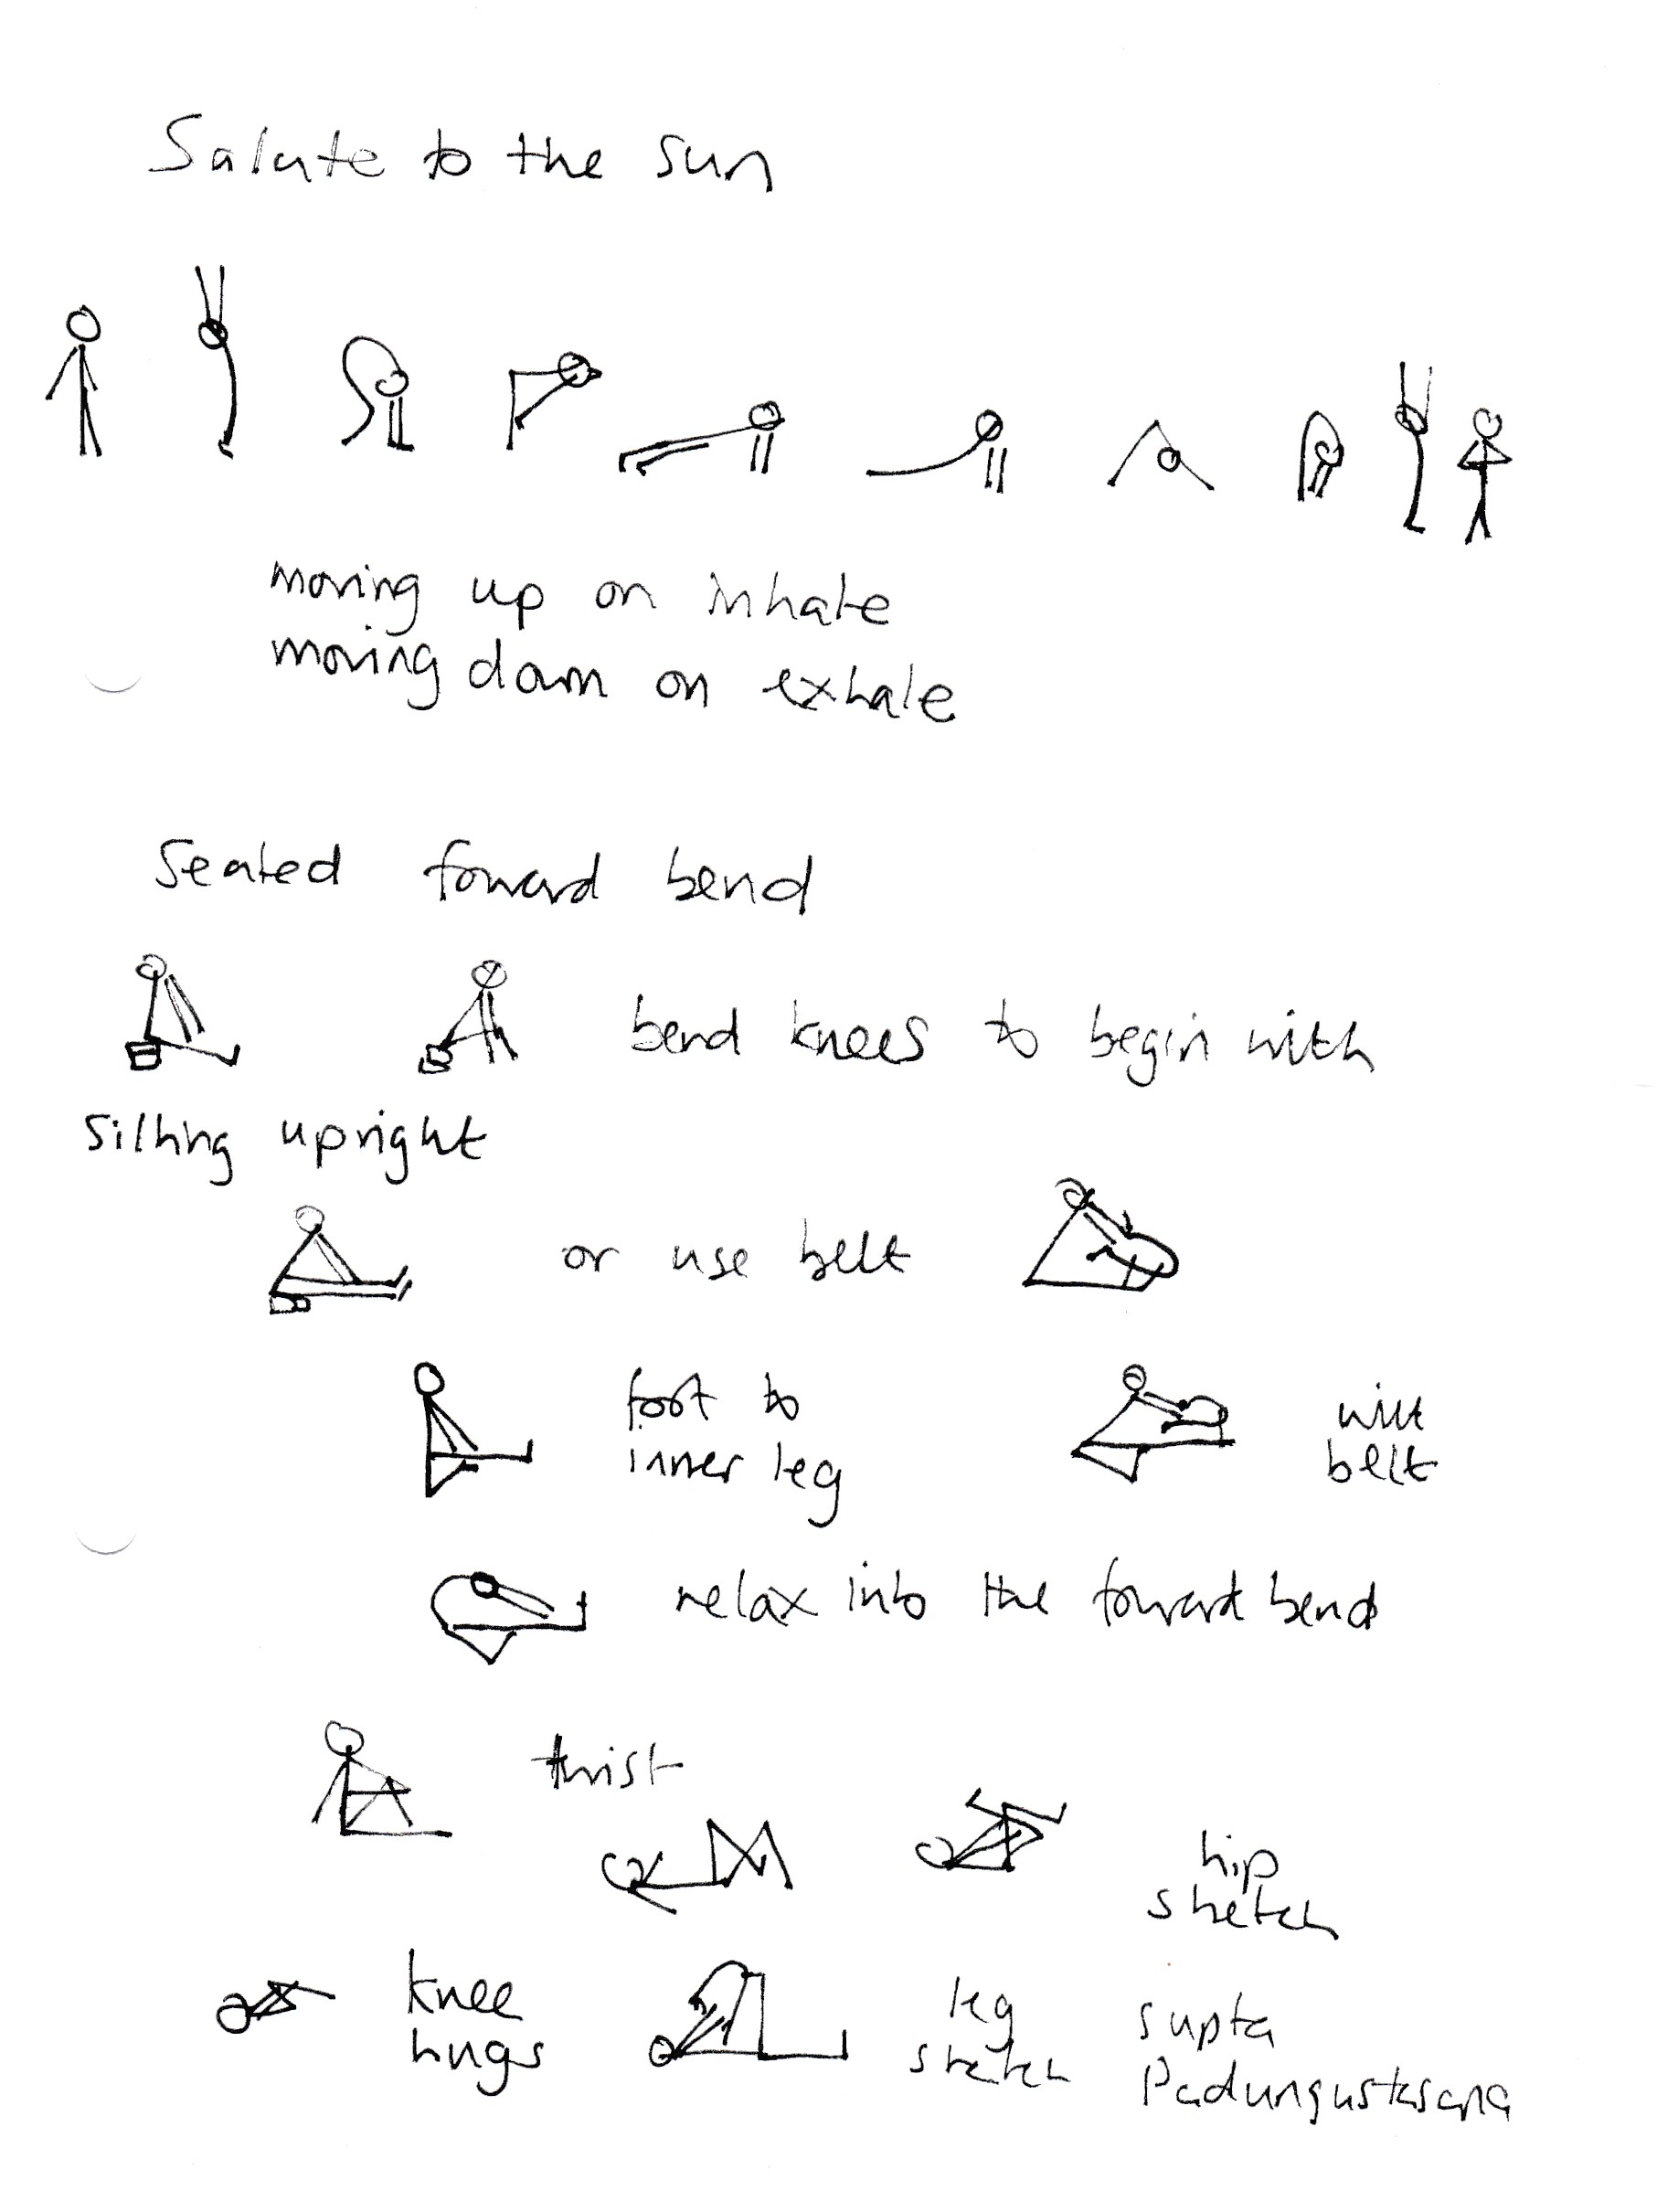 Salute to the sun
moving up on inhale
moving down on exhale
Seated foward bend
bend knees to begin with
sitting upright
or use belt
foot to
inner leg
with
belt
relax into the foward bend
twist
hip
stretch
knee
hugs
leg
stretch
supta
Padungustasana